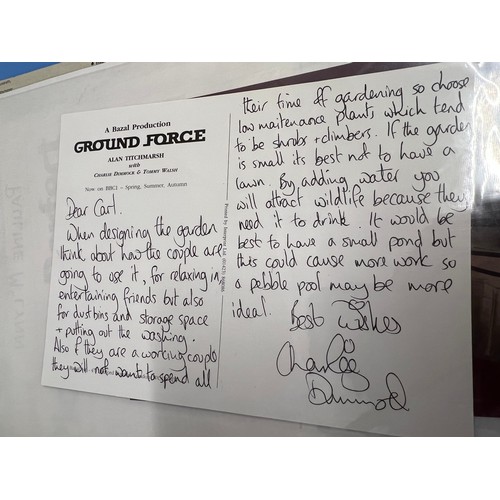 A Bazal Production
GROUND FORCE
ALAN TITCHMARSH
with
CHARLIE DIMMOCK & TOMMY WALSH
Now on BBC1 - Spring, Summer, Autumn
Dear Carl.
When designing the garden
think about how the couple are
going to use it, for relaxing in
entertaining friends but also
for dustbins and storage space
+ putting out the washing.
Also if they are a working couple
they will not want to spend all
their time off gardening so choose
low maitenance plants which tend
to be shrubs + climbers. If the garden
is small its best not to have a
lawn. By adding water you
will attract wildlife because they
need it to drink. It would be
best to have a small pond but
this could cause more work so
a pebble pool may be more
ideal. Best Wishes
Charlie
Dimmock
Printed by